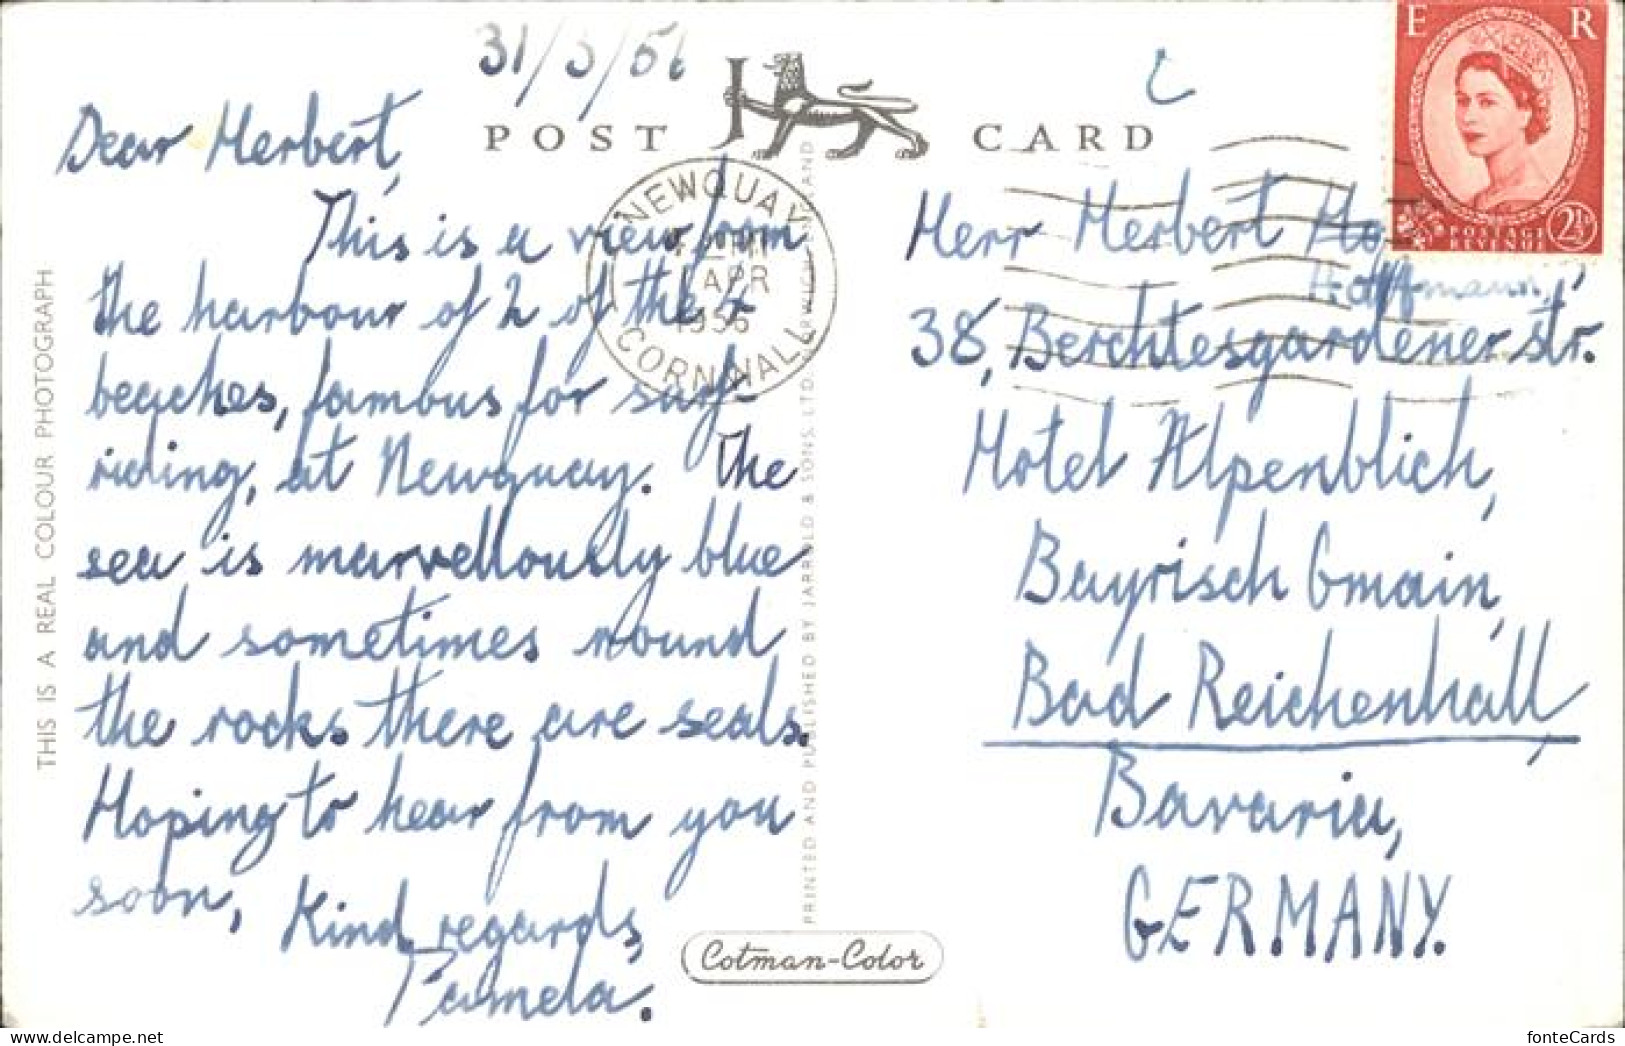 31/3/56
Dear Herbert,
This is a view from
the harbour of 2 of the 5
beaches, famous for surf-
riding, at Newquay. The
sea is marvellously blue
and sometimes round
the rocks there are seals.
Hoping to hear from you
soon,
Kind regards,
Pamela.
THIS IS A REAL COLOUR PHOTOGRAPH
POST CARD
J
NEWQUAY
1 APR
1956
CORNWALL
PRINTED AND PUBLISHED BY JARROLD & SONS, LTD.
Cotman-Color
E R
POSTAGE
REVENUE
2½D
Herr Herbert
Hoffmann,
38, Berchtesgadenerstr.
Hotel Alpenblick,
Bayrisch Gmain,
Bad Reichenhall,
Bavaria,
GERMANY.
fonteCards